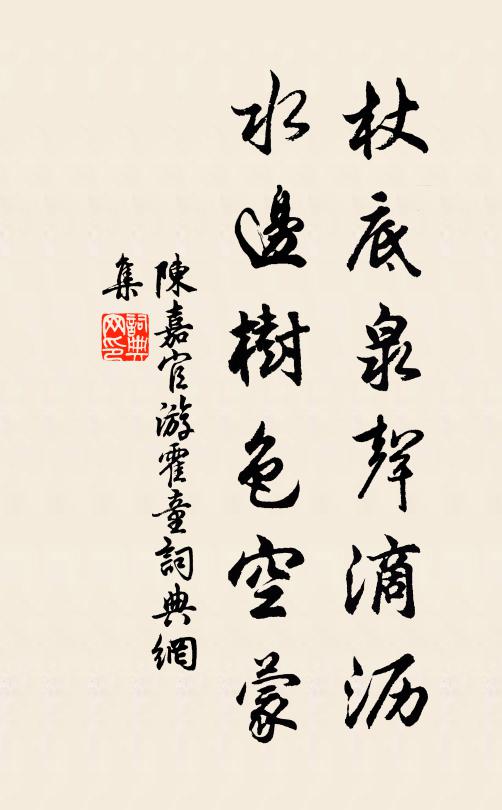 杖底泉聲滴沥
水邊樹色空蒙
陳嘉官游霍童詞典網
集
詞典
网印